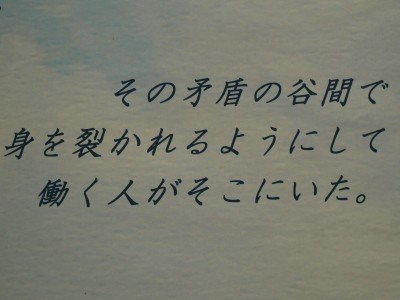 その矛盾の谷間で
身を裂かれるようにして
働く人がそこにいた。